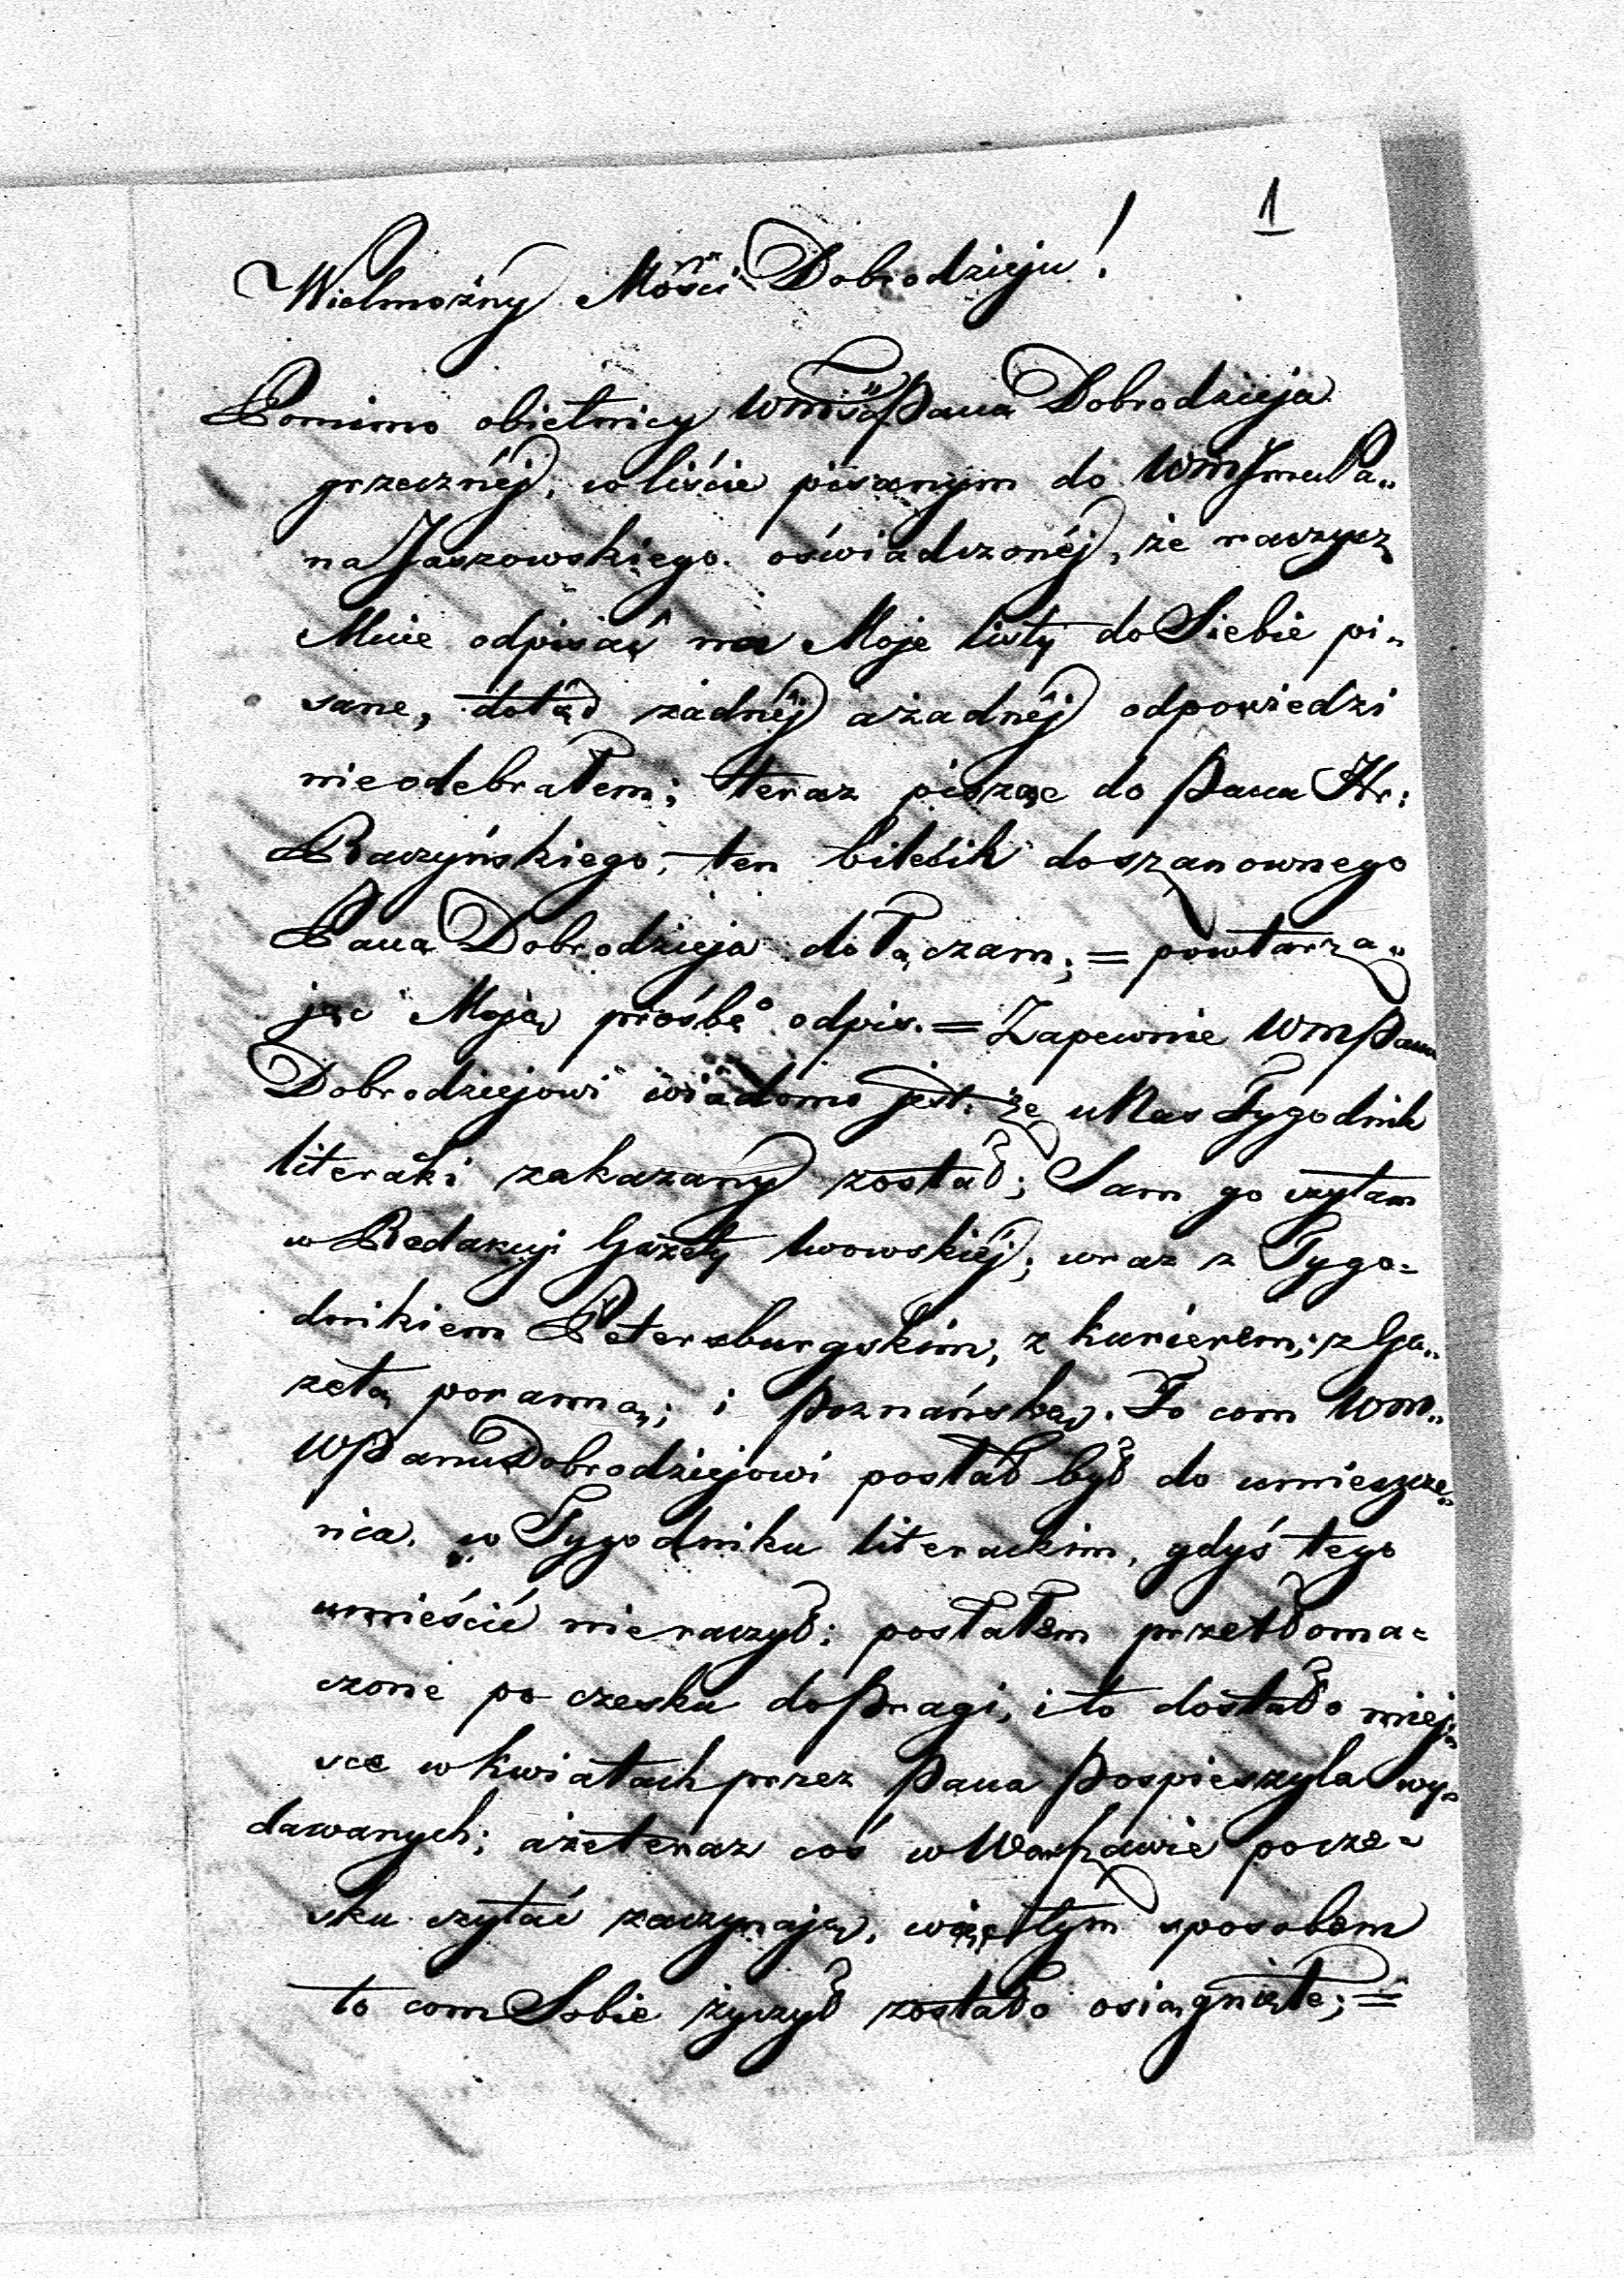 1
Wielmożny Mości Dobrodzieju!
Pomimo obietnicy Pana Dobrodzieja
grzecznéj, w liście pisanym do WmJmć Pa„
na Jaszowskiego oświadczonéj, że raczysz
Mnie odpisać na Moje listy do Siebie pi„
sane, dotąd żadnéj ażadnéj odpowiedzi
nieodebrałem; teraz pisząc do Pana Hr:
Raczyńskiego, ten bilecik doszanownego
Pana Dobrodzieja dołączam; = powtarza„
jąc Moją prośbę o odpis. = Zapewnie WmPanu
Dobrodziejowi wiadomo jest: że uNas Tygodnik
literacki zakazany został; Sam go czytam
w Redakcyi Gazety lwowskiéj; wraz z Tygo=
dnikiem Petersburgskim, z kurierem; z Ga„
zetą poranną; i Poznańską. To com Wm„
WPanu Dobrodziejowi posłał był do umieszcze„
nia w Tygodniku literackim, gdyś tego
umieścić nieraczył: posłałem przetłoma=
czone po czesku doPragi, i to dostało miej„
sce wkwiatach przez Pana Pospieszyla wy„
dawanych; ażeteraz coś w Warszawie pocze=
sku czytać zaczynają, więc tym sposobem
to com Sobie życzył zostało osiągnięte; =